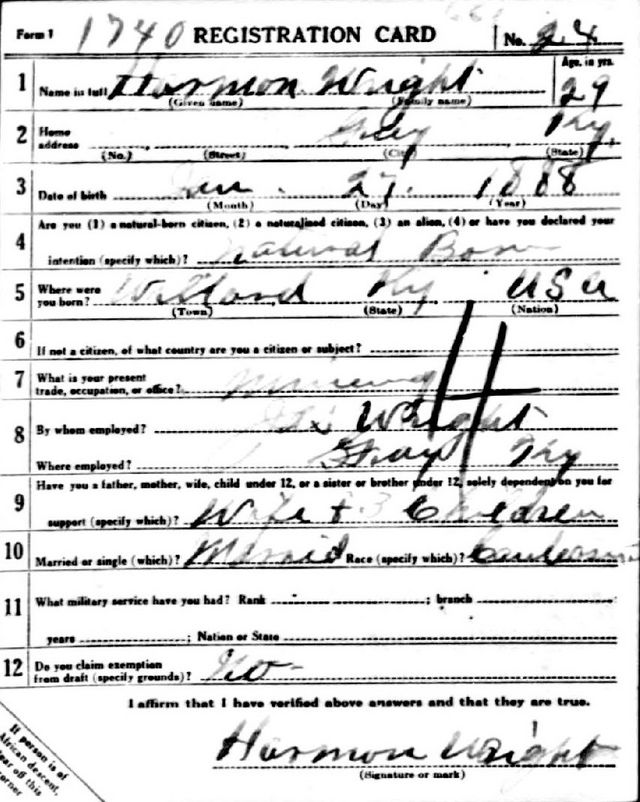 Form 1 1740 REGISTRATION CARD No. 24
1 Name in full Harmon Wright Age, in yrs. 29
(Given name) (Family name)
2 Home address Gray Ky.
(No.) (Street) (City) (State)
3 Date of birth Jan. 27. 1888
(Month) (Day) (Year)
4 Are you (1) a natural-born citizen, (2) a naturalized citizen, (3) an alien, (4) or have you declared your
intention (specify which)? Natural Born
5 Where were you born? Willard Ky USA
(Town) (State) (Nation)
6 If not a citizen, of what country are you a citizen or subject?
7 What is your present trade, occupation, or office? Mining
8 By whom employed? Wright
Where employed? Gray Ky
9 Have you a father, mother, wife, child under 12, or a sister or brother under 12, solely dependent on you for
support (specify which)? Wife + 3 Children
10 Married or single (which)? Married Race (specify which)?
11 What military service have you had? Rank ; branch
years ; Nation or State
12 Do you claim exemption from draft (specify grounds)? No
I affirm that I have verified above answers and that they are true.
Harmon Wright
(Signature or mark)
If person is of
African descent,
tear off this
corner